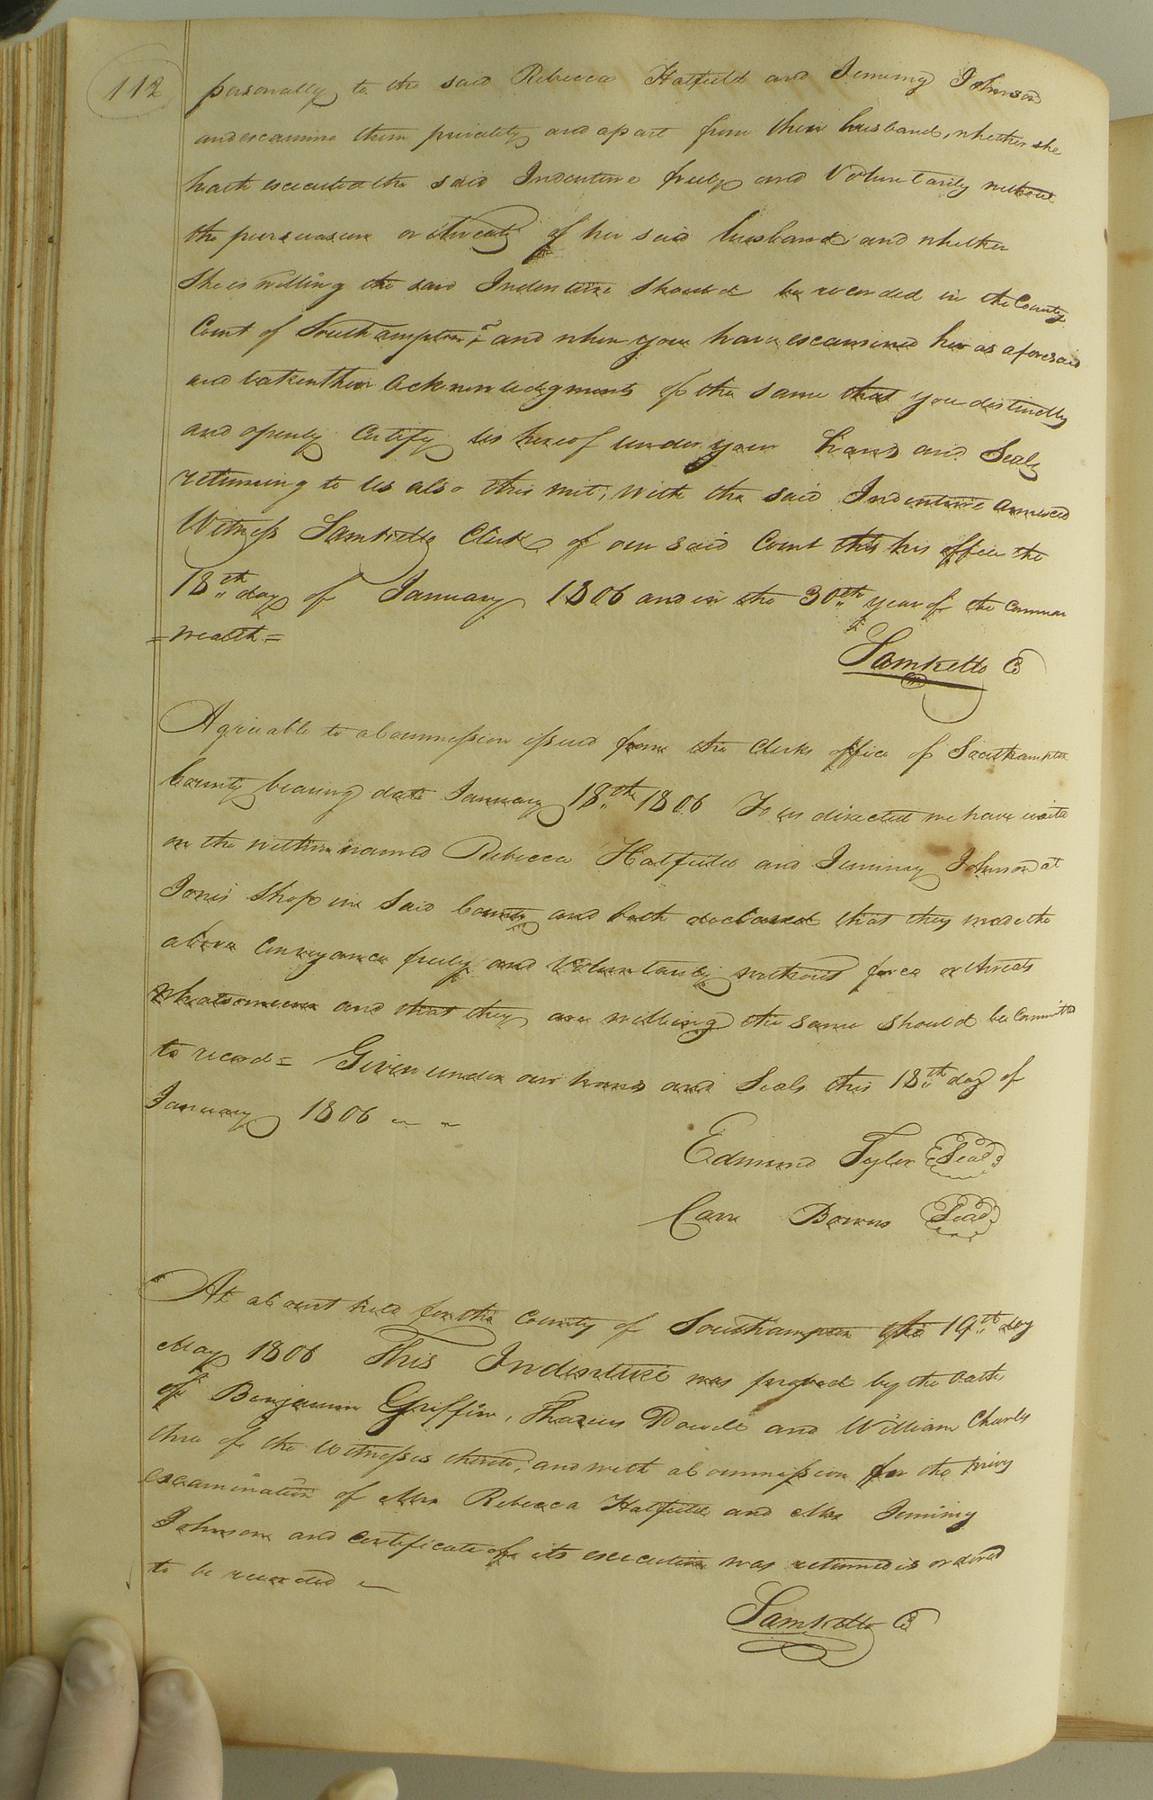 112
personally to the said Rebecca Hatfield and Jemimy Johnson
and examine them privately and apart from their husband, whether she
hath executed the said Indenture freely and Voluntarily without
the pursuasion or threats of her said husband and whether
She is willing the said Indenture should be recorded in the County
Court of Southampton & and when you have examined her as aforesaid
and taken their acknowledgments of the same that you distinctly
and openly Certify us hereof under your hand and Seals
returning to us also this writ, with the said Indenture annexed
Witness Saml Kello Clerk of our said Court this his office the
18th day of January 1806 and in the 30th year of the common
=wealth=
Saml Kello C
Agreeable to a commission issued from the Clerks office of Southampton
County bearing date January 18th 1806 To us directed we have waited
on the within named Rebecca Hatfield and Jemimy Johnson at
Jones Shop in Said County and both declared that they made the
above Conveyance freely and Voluntarily without force or threats
whatsomever and that they are willing the same should be Committed
to record = Given under our hands and Seals this 18th day of
January 1806
Edmund Tyler Seal
Carr Bowers Seal
At a Court held for the County of Southampton the 19th day
May 1806 This Indenture was proved by the oath
of Benjamin Griffin, and William Charles
three of the witnesses thereto, and with a Commission for the privy
examination of Mrs Rebecca Hatfield and Mrs Jemimy
Johnson and Certificate of its execution was returned is ordered
to be recorded
Saml Kello C